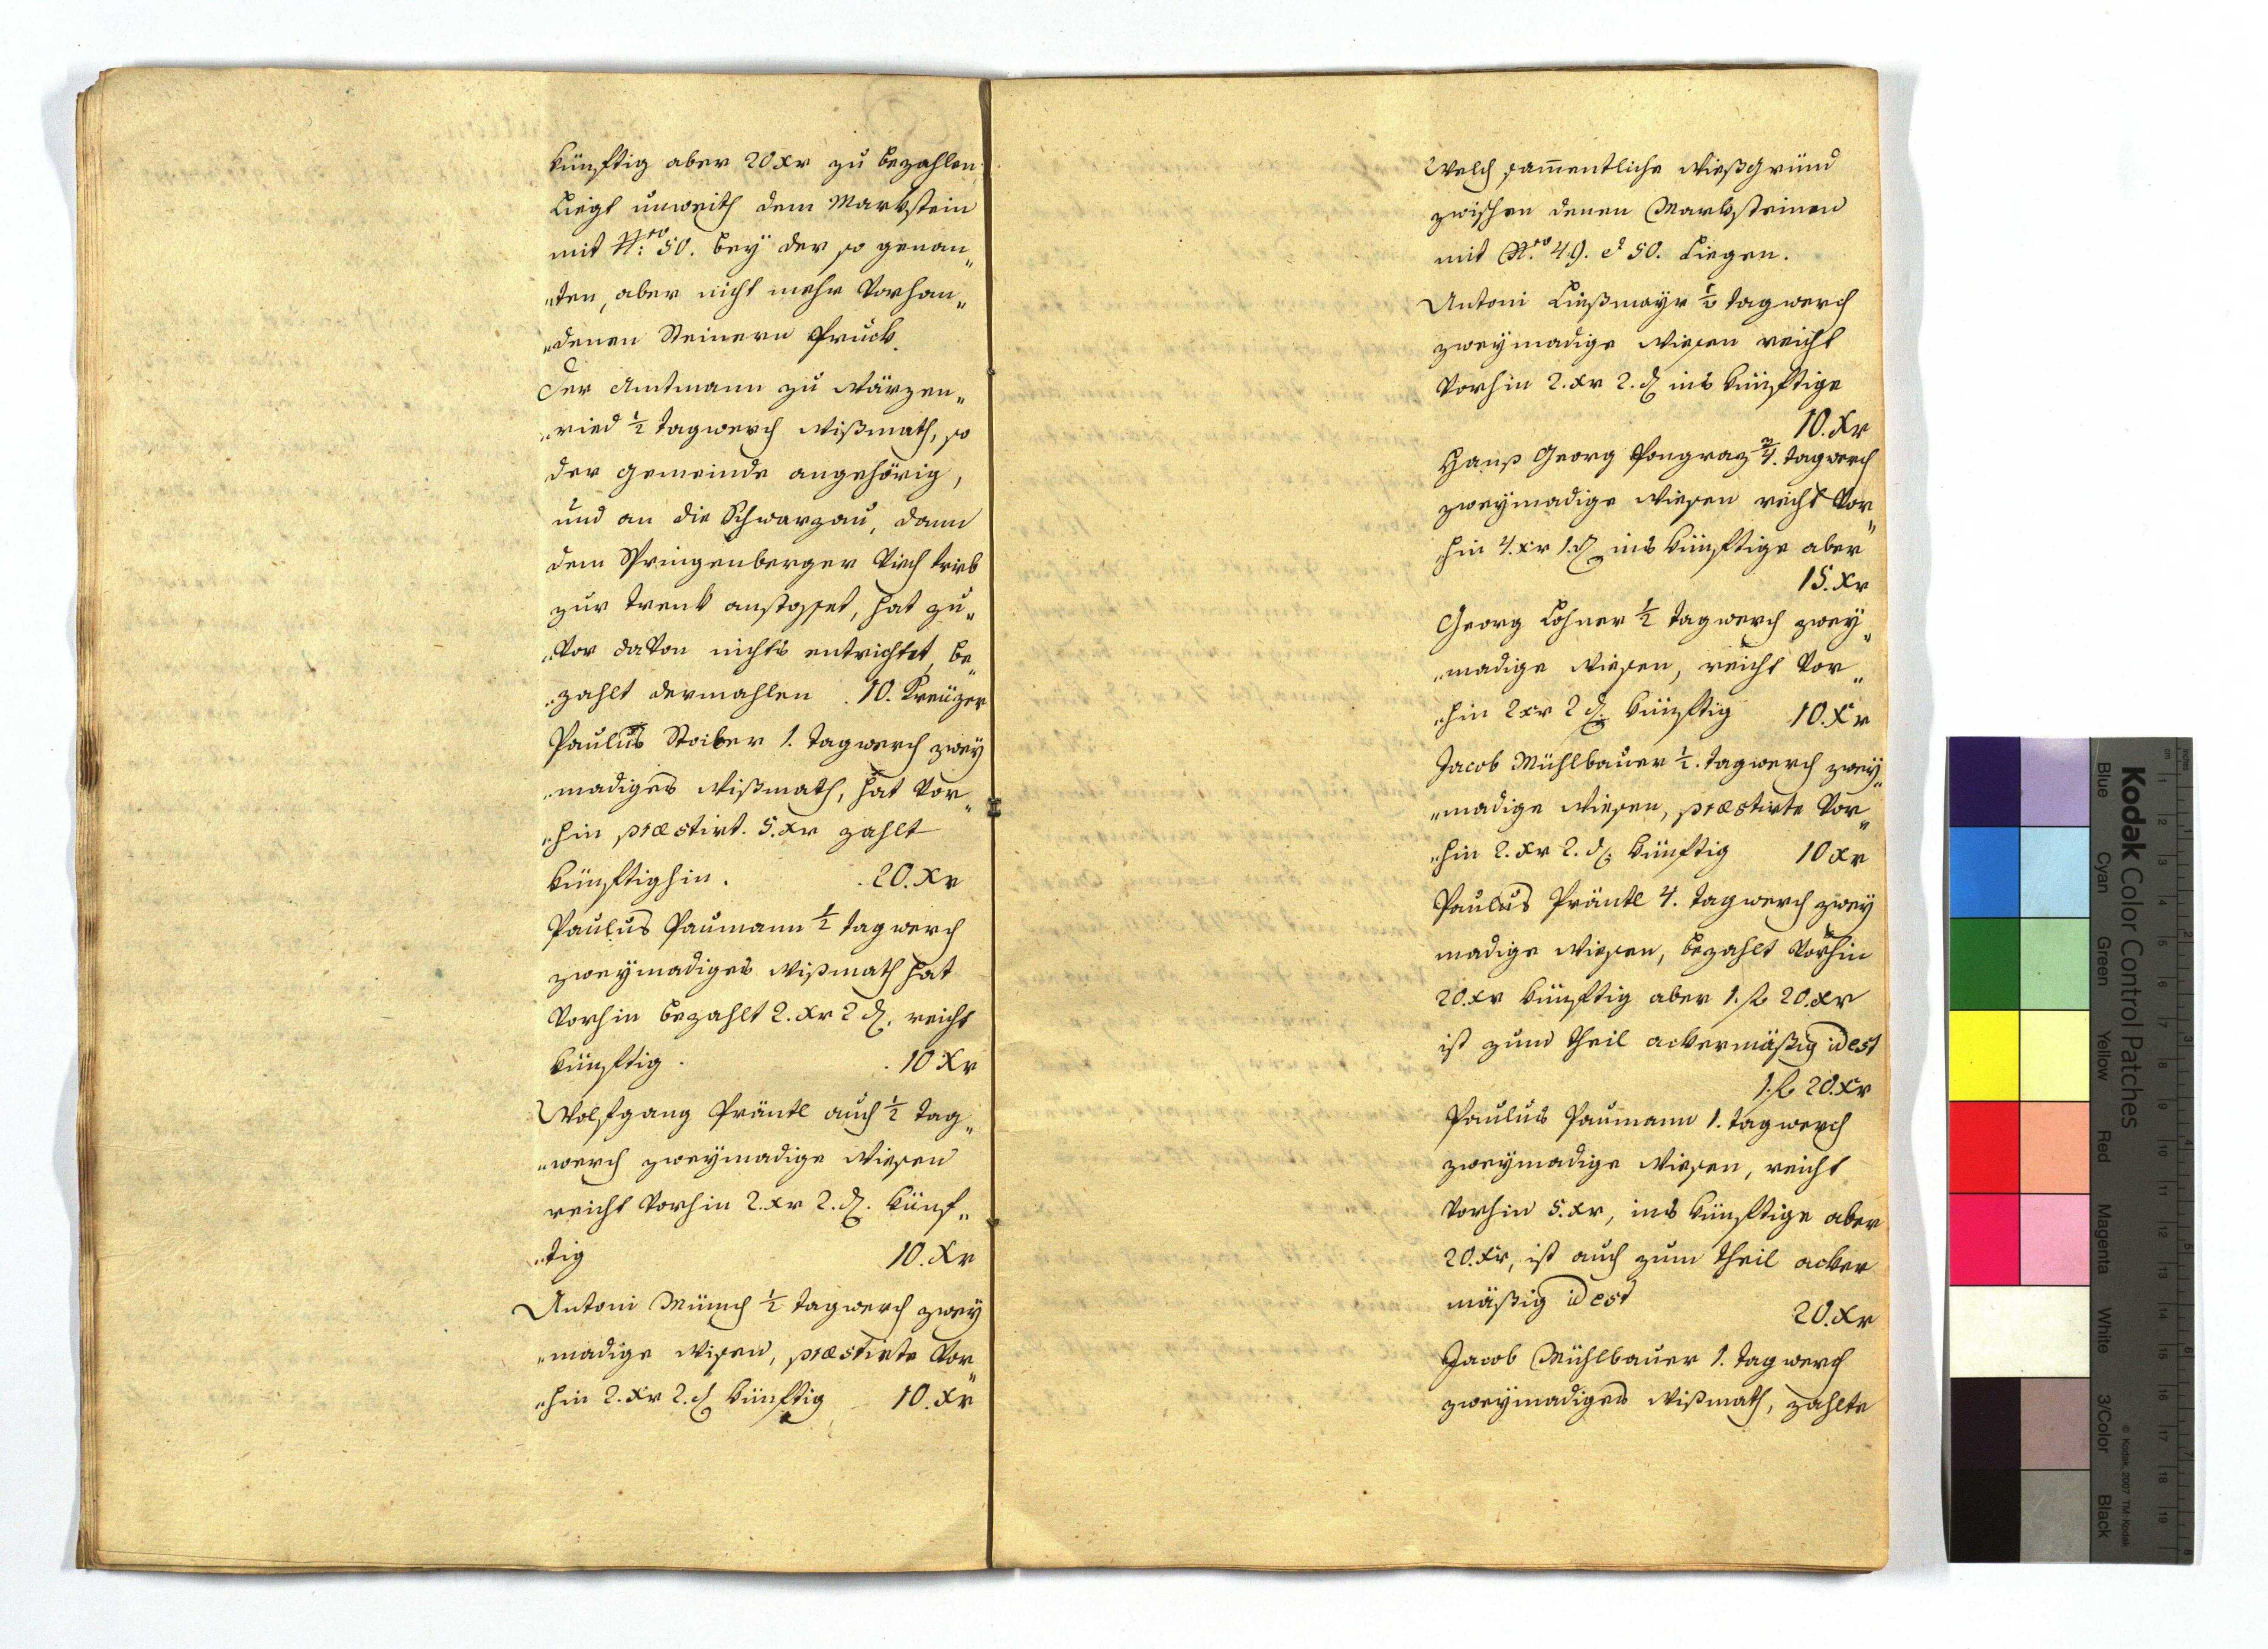 künftig aber 20 xr zu bezahlen
Liegt unweith dem Markstein
mit N:ro 50. bey der so genan„
„ten, aber nicht mehr Vorhan„
„denen Steinern Pruck.
Der Amtmann zu Wärzen„
„ried ½ tagwerch Wißmath, so
der gemeinde angehörig,
und an die Schwarzau, dann
dem Springenberger Viech trieb
zur trenk anstosset, hat zu„
„vor daVon nichts entrichtet, be„
„zahlt dermahlen . 10. Kreüzer
Paulus Stoiber 1. tagwerch zwey
„madiges Wißmath, hat Vor„
„hin præstirt. 5. xr zahlt
künftighin. . 20. xr
Paulus Paumann ½ tagwerch
zweymadiges Wißmath hat
Vorhin bezahlt 2. xr 2 ₰. reicht
künftig . . 10 xr
Wolfgang Präntl auch ½ tag„
„werch zweymadige Wiesen
reicht Vorhin 2. xr 2. ₰. künf„
„tig 10. xr
Antoni Münch ½ tagwerch zwey
„madige Wisen, præstirte Vor„
„hin 2. xr 2. ₰ künftig 10. xr
Welch sam̅entliche Wießgründ
zwischen denen Marksteinen
mit N.ro 49. et 50. Liegen.
Antoni Ließmayr ½ tagwerch
zweymadige Wiesen reicht
Vorhin 2. xr 2. ₰ ins künftige
10. xr
Hanß Georg Pongraz ¾. tagwerch
zweymadige Wiesen reicht Vor„
„hin 4. xr 1. ₰ ins künftige aber
15. xr
Georg Lohner ½ tagwerch zwey„
„madige Wiesen, reicht Vor„
„hin 2 xr 2 ₰. künftig 10. xr
Jacob Mühlbauer ½. tagwerch zwey„
„madige Wiesen, præstirte Vor„
„hin 2. xr 2. ₰. künftig 10 xr
Paulus Präntl 4. tagwerch zwey
madige Wiesen, bezahlt Vorhin
20. xr künftig aber 1. fl 20. xr
ist zum theil ackermäßig id est
1. fl 20. xr
Paulus Paumann 1. tagwerch
zweymadige Wiesen, reicht
Vorhin 5. xr, ins künftige aber
20. xr, ist auch zum theil acker
mäßig id est 20. xr
Jacob Mühlbauer 1. tagwerch
zweymadiges Wißmath, zahlte
Kodak Color Control Patches
© Kodak, 2007 TM: Kodak
Blue Cyan Green Yellow Red Magenta White 3/Color Black